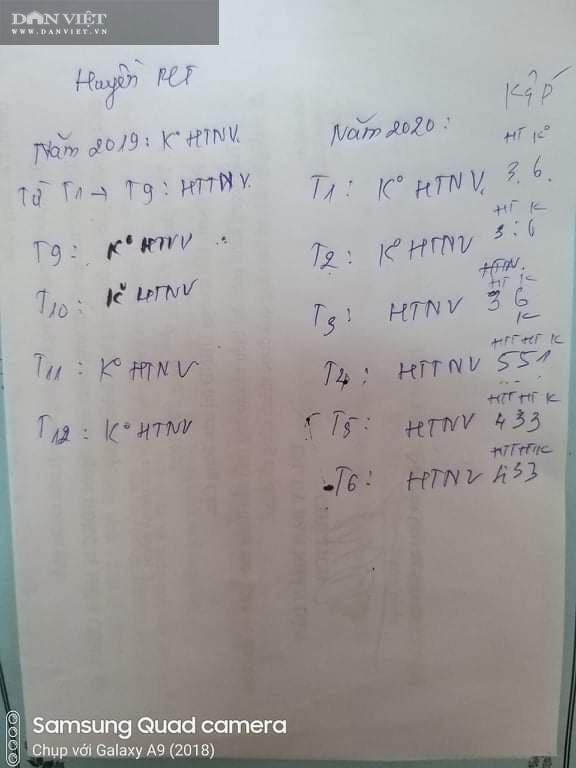 DÂN VIỆT
WWW.DANVIET.VN
Huyền
Năm 2019: K° HTNV.
Từ T1 → T9: HTTNV.
T9: K° HTNV
T10: K° HTNV
T11: K° HTNV
T12: K° HTNV
Năm 2020:
HT K°
T1: K° HTNV. 3. 6.
HT K
T2: K° HTNV 3: 6
HTHV.
HT K
T3: HTNV 3 6
K
HTT HT K
T4: HTTNV 5 5 1
HTT HT K
T5: HTNV 4 3 3
HTT HT K
T6: HTNV 4 3 3
Samsung Quad camera
Chụp với Galaxy A9 (2018)